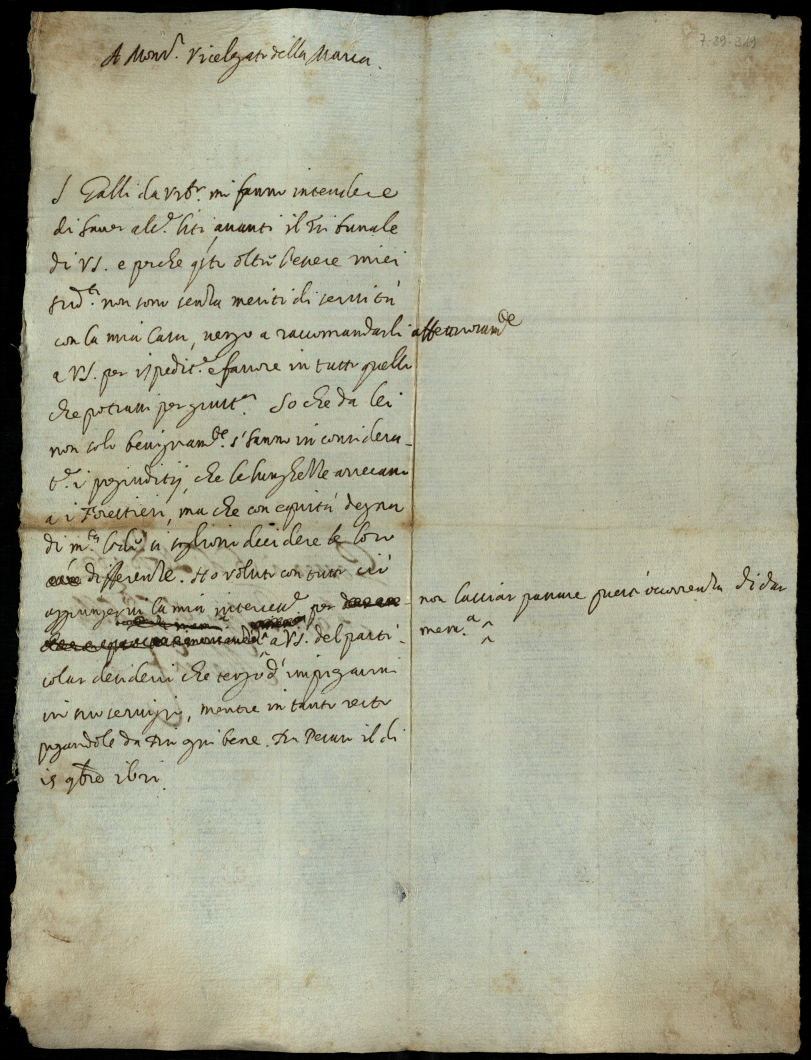 7-29-349
A Monr. Vicelegato della Marca.
I Galli da Urb.o mi fanno intendere
di haver alc.e liti avanti il Tribunale
di VS. e perche q.ti oltre l'essere miei
sud.ti non sono senza meriti di servitù
con la mia Casa, vengo a raccomandarli affettuosam.te
a VS. per ispedit.e e favore in tutto quello
che potranno per giust.a So che da lei
non solo benignam.te s'hanno in considera-
t.e i pregiuditij, che le lunghezze arrecano
a i Forestieri, ma che con equità degna
di m.ta lode si sogliono decidere le loro
differenze. Ho voluto con tutto ciò
aggiungervi la mia interces.e per
non lasciar passare questa occorrenza di dar
mem.a
a VS. del parti-
colar desiderio che tengo d'impiegarmi
in suo servigio, mentre in tanto resto
pregandole da Dio ogni bene. Di Pesaro il di
15 9bre 1601